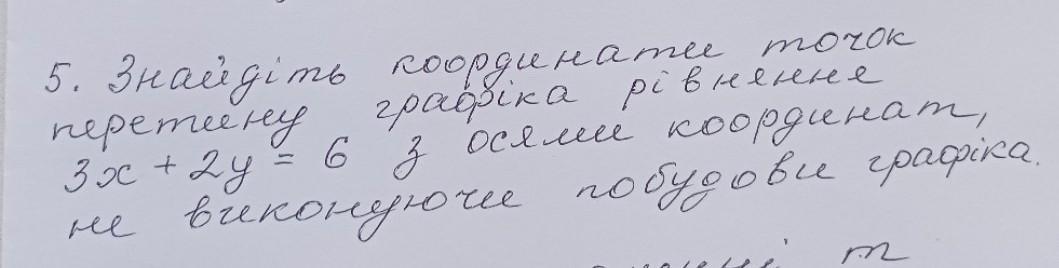 5. Знайдіть координати точок
перетину графіка рівняння
3x + 2y = 6 з осями координат,
не виконуючи побудови графіка.